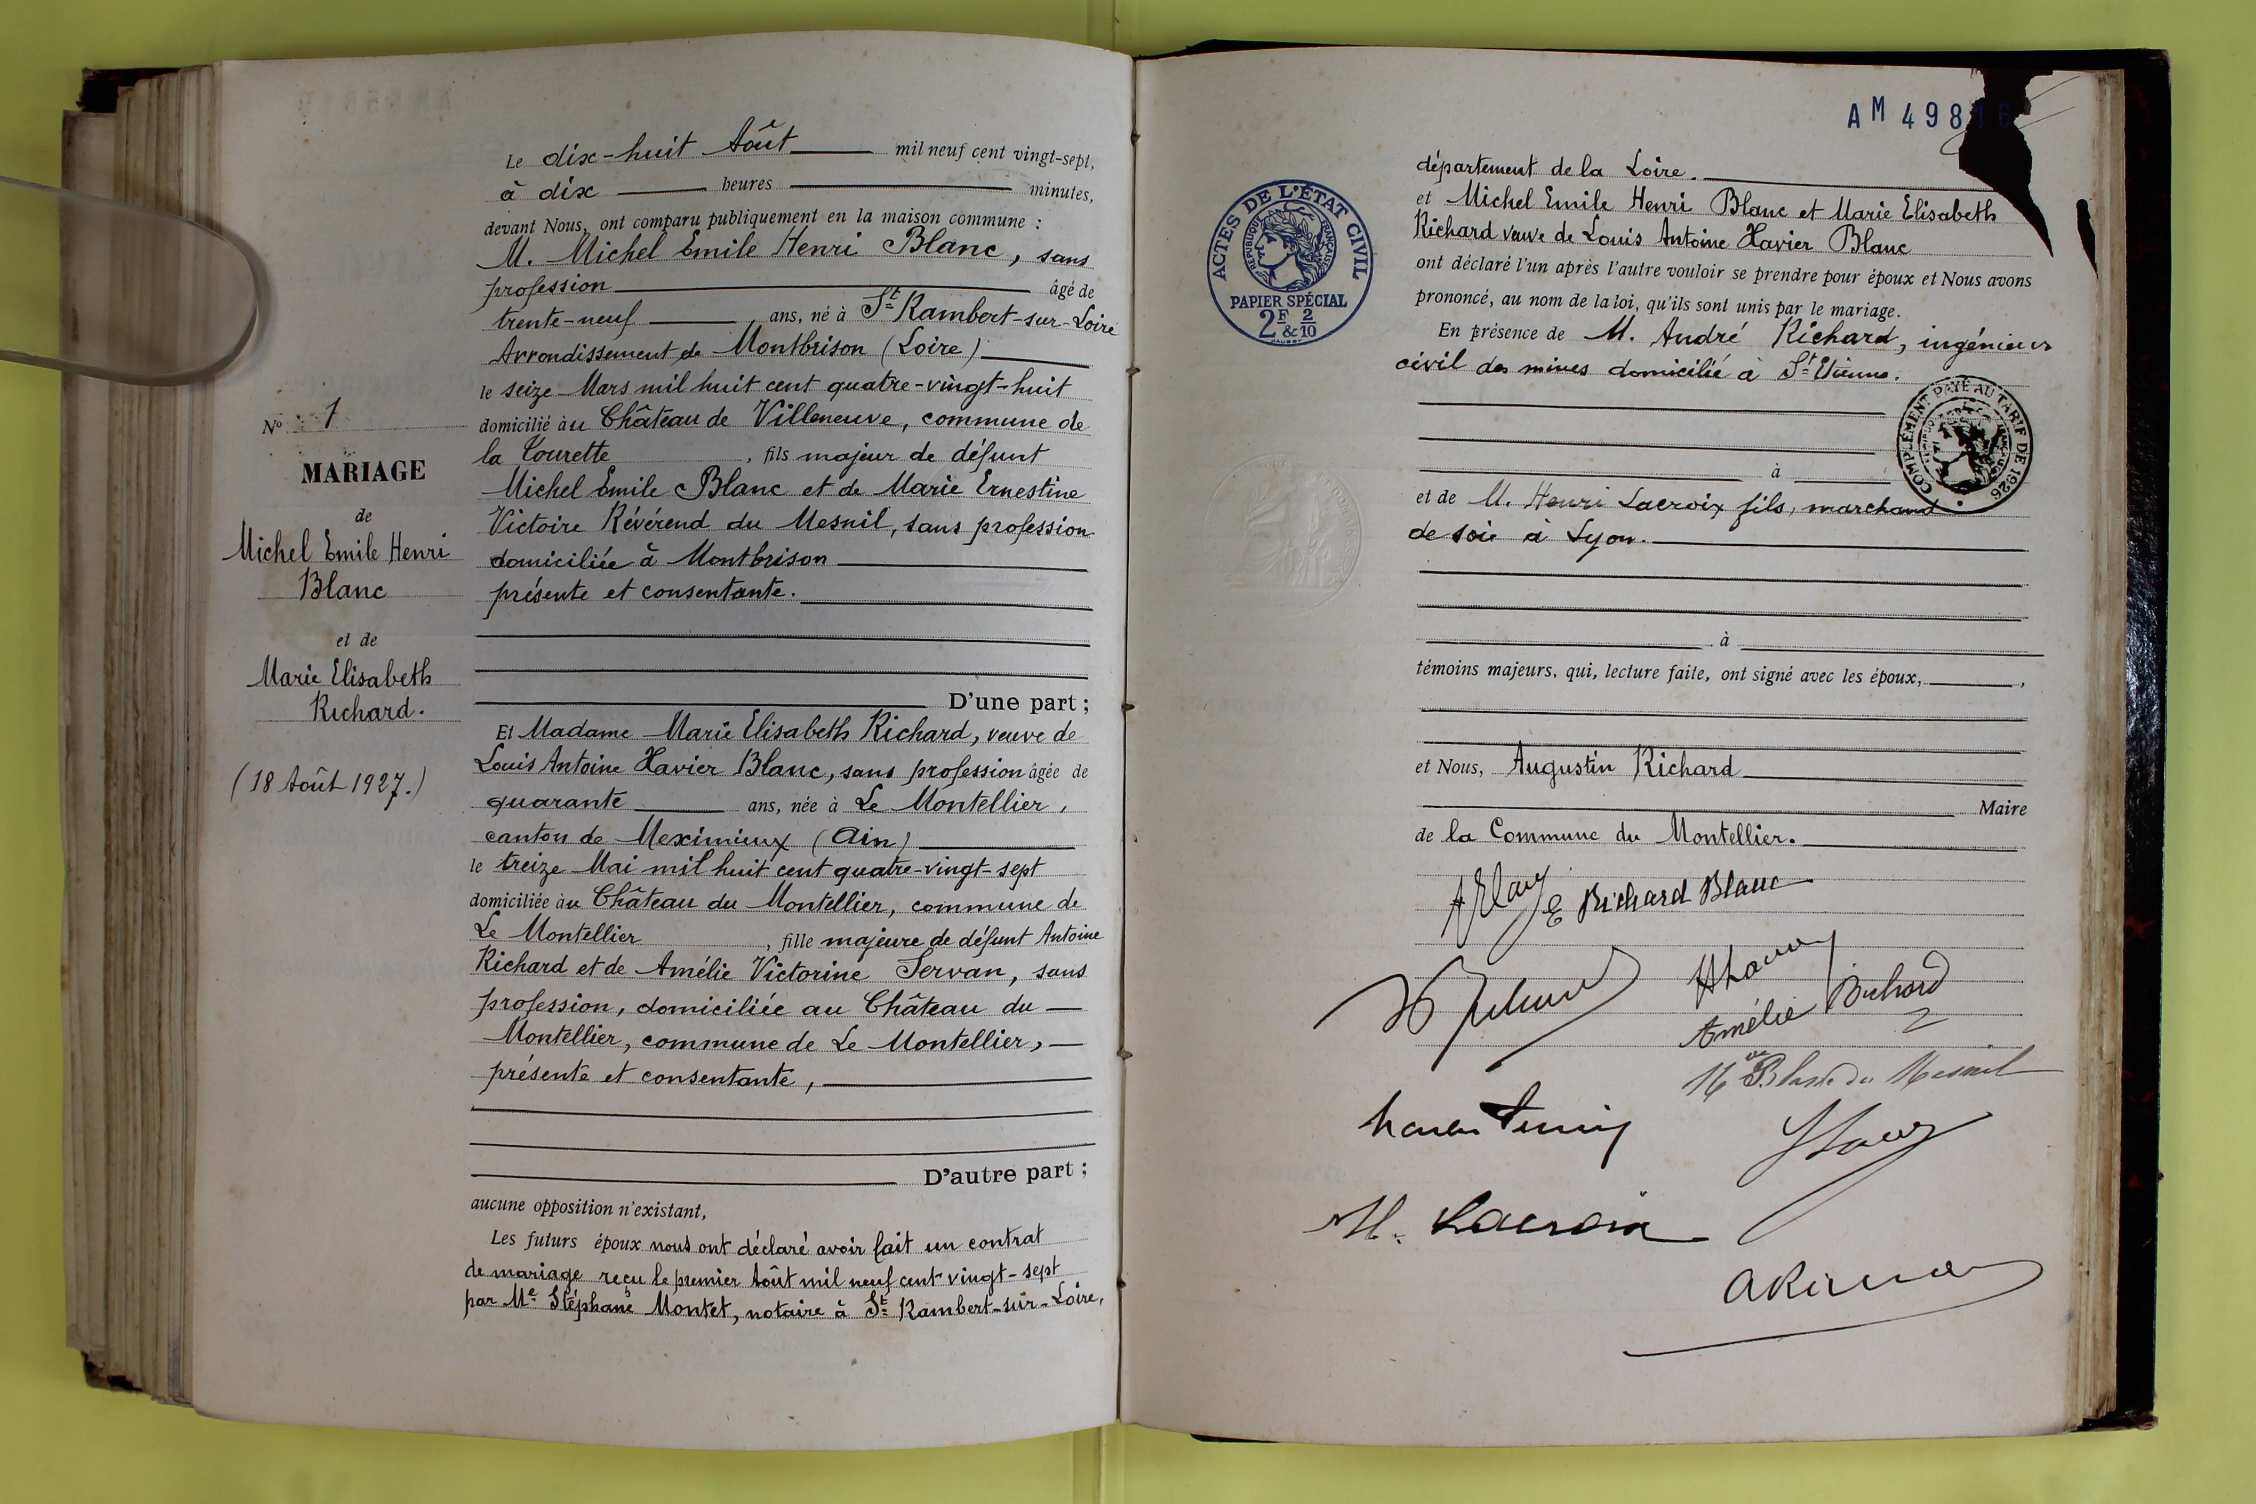 Le dix-huit Août mil neuf cent vingt-sept,
à dix heures minutes,
devant Nous, ont comparu publiquement en la maison commune :
M. Michel Emile Henri Blanc, sans
profession âgé de
trente-neuf ans, né à St Rambert-sur-Loire
Arrondissement de Montbrison (Loire)
le seize Mars mil huit cent quatre-vingt-huit
domicilié au Château de Villeneuve, commune de
la Tourette, fils majeur de défunt
Michel Emile Blanc et de Marie Ernestine
Victoire Révérend du Mesnil, sans profession
domiciliée à Montbrison
présente et consentante.
D'une part ;
Nº 1
MARIAGE
de
Michel Emile Henri
Blanc
et de
Marie Elisabeth
Richard.
(18 Août 1927.)
Et Madame Marie Elisabeth Richard, veuve de
Louis Antoine Xavier Blanc, sans profession âgée de
quarante ans, née à Le Montellier,
canton de Meximieux (Ain)
le treize Mai mil huit cent quatre-vingt-sept
domiciliée au Château du Montellier, commune de
Le Montellier, fille majeure de défunt Antoine
Richard et de Amélie Victorine Servan, sans
profession, domiciliée au Château du
Montellier, commune de Le Montellier,
présente et consentante,
D'autre part ;
aucune opposition n'existant,
Les futurs époux nous ont déclaré avoir fait un contrat
de mariage reçu le premier Août mil neuf cent vingt-sept
par Me Stéphane Montet, notaire à St Rambert-sur-Loire,
AM 498
département de la Loire.
et Michel Emile Henri Blanc et Marie Elisabeth
Richard veuve de Louis Antoine Xavier Blanc
ont déclaré l'un après l'autre vouloir se prendre pour époux et Nous avons
prononcé, au nom de la loi, qu'ils sont unis par le mariage.
En présence de M. André Richard, ingénieur
civil des mines domicilié à St Etienne.
à
et de M. Henri Lacroix fils, marchand
de soie à Lyon.
à
témoins majeurs, qui, lecture faite, ont signé avec les époux,
et Nous, Augustin Richard
Maire
de la Commune du Montellier.
ACTES DE L'ÉTAT CIVIL
RÉPUBLIQUE FRANÇAISE
PAPIER SPÉCIAL
2F & 2/10
COMPLÉMENT PAYÉ AU TARIF DE 1926
E Richard Blanc
Amélie Richard
Vve Blanc du Mesnil
H. Lacroix